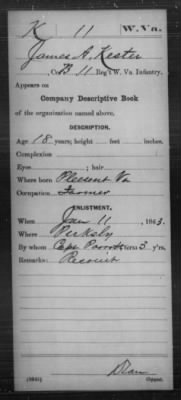 K 11 W. Va.
James A. Kester
Co. B, 11 Reg't W. Va. Infantry.
Appears on
Company Descriptive Book
of the organization named above.
DESCRIPTION.
Age 18 years; height feet inches.
Complexion
Eyes ; hair
Where born Plesent Va
Occupation Farmer
ENLISTMENT.
When Jan 11, 1863.
Where
By whom Capt Parrott; term 3 y'rs.
Remarks: Recruit
Copyist.